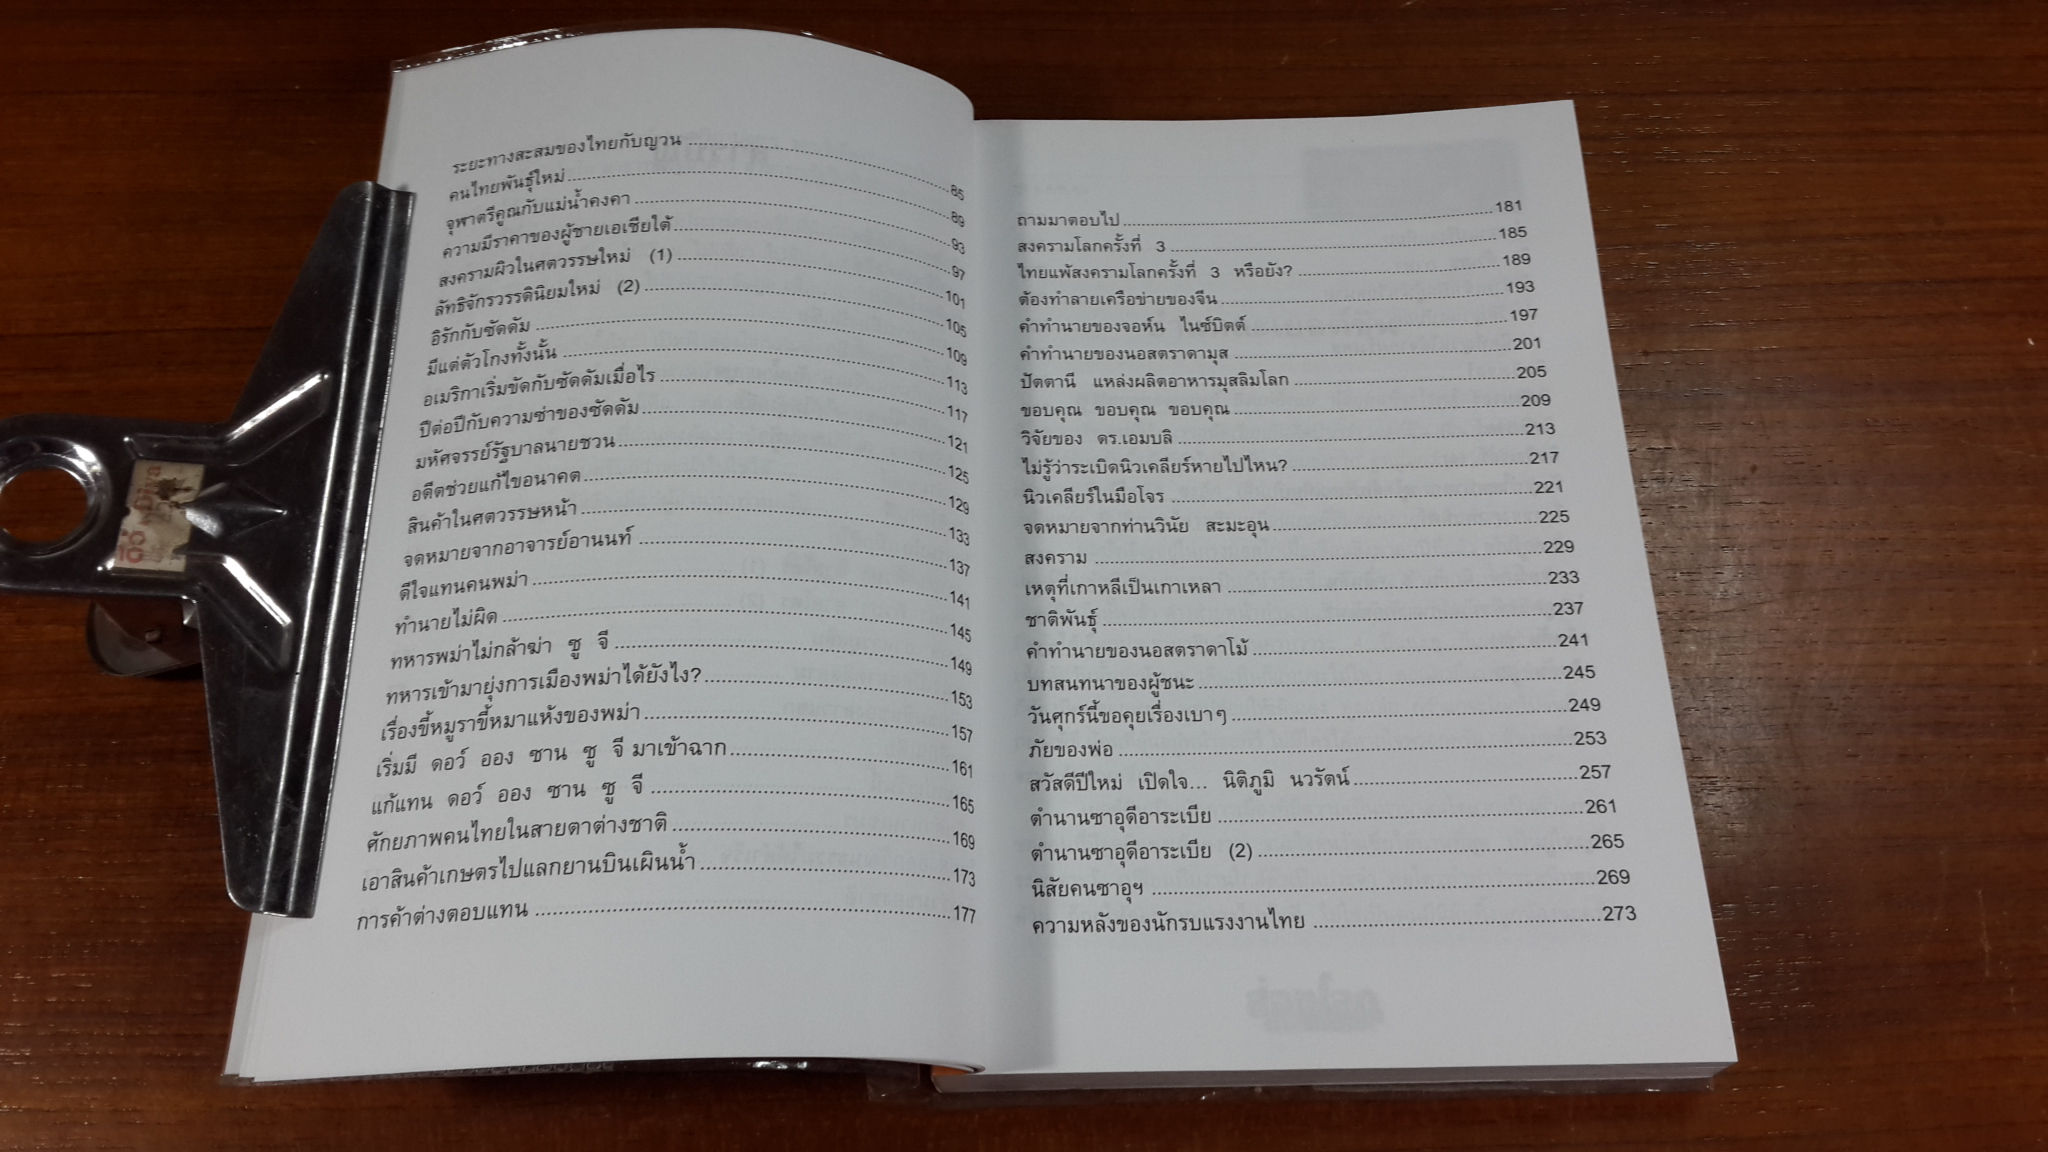 ระยะทางสะสมของไทยกับญวน ........ 85
คนไทยพันธุ์ใหม่ ........ 89
จุฬาตรีคูณกับแม่น้ำคงคา ........ 93
ความมีราคาของผู้ชายเอเชียใต้ ........ 97
สงครามผิวในศตวรรษใหม่ (1) ........ 101
ลัทธิจักรวรรดินิยมใหม่ (2) ........ 105
อิรักกับซัดดัม ........ 109
มีแต่ตัวโกงทั้งนั้น ........ 113
อเมริกาเริ่มขัดกับซัดดัมเมื่อไร ........ 117
ปีต่อปีกับความซ่าของซัดดัม ........ 121
มหัศจรรย์รัฐบาลนายชวน ........ 125
อดีตช่วยแก้ไขอนาคต ........ 129
สินค้าในศตวรรษหน้า ........ 133
จดหมายจากอาจารย์อานนท์ ........ 137
ดีใจแทนคนพม่า ........ 141
ทำนายไม่ผิด ........ 145
ทหารพม่าไม่กล้าฆ่า ซู จี ........ 149
ทหารเข้ามายุ่งการเมืองพม่าได้ยังไง? ........ 153
เรื่องขี้หมูราขี้หมาแห้งของพม่า ........ 157
เริ่มมี ดอว์ ออง ซาน ซู จี มาเข้าฉาก ........ 161
แก้แทน ดอว์ ออง ซาน ซู จี ........ 165
ศักยภาพคนไทยในสายตาต่างชาติ ........ 169
เอาสินค้าเกษตรไปแลกยานบินเผินน้ำ ........ 173
การค้าต่างตอบแทน ........ 177
ถามมาตอบไป ........ 181
สงครามโลกครั้งที่ 3 ........ 185
ไทยแพ้สงครามโลกครั้งที่ 3 หรือยัง? ........ 189
ต้องทำลายเครือข่ายของจีน ........ 193
คำทำนายของจอห์น ไนซ์บิตต์ ........ 197
คำทำนายของนอสตราดามุส ........ 201
ปัตตานี แหล่งผลิตอาหารมุสลิมโลก ........ 205
ขอบคุณ ขอบคุณ ขอบคุณ ........ 209
วิจัยของ ดร.เอมบลิ ........ 213
ไม่รู้ว่าระเบิดนิวเคลียร์หายไปไหน? ........ 217
นิวเคลียร์ในมือโจร ........ 221
จดหมายจากท่านวินัย สะมะอุน ........ 225
สงคราม ........ 229
เหตุที่เกาหลีเป็นเกาเหลา ........ 233
ชาติพันธุ์ ........ 237
คำทำนายของนอสตราดาโม้ ........ 241
บทสนทนาของผู้ชนะ ........ 245
วันศุกร์นี้ขอคุยเรื่องเบาๆ ........ 249
ภัยของพ่อ ........ 253
สวัสดีปีใหม่ เปิดใจ... นิติภูมิ นวรัตน์ ........ 257
ตำนานซาอุดีอาระเบีย ........ 261
ตำนานซาอุดีอาระเบีย (2) ........ 265
นิสัยคนซาอุฯ ........ 269
ความหลังของนักรบแรงงานไทย ........ 273